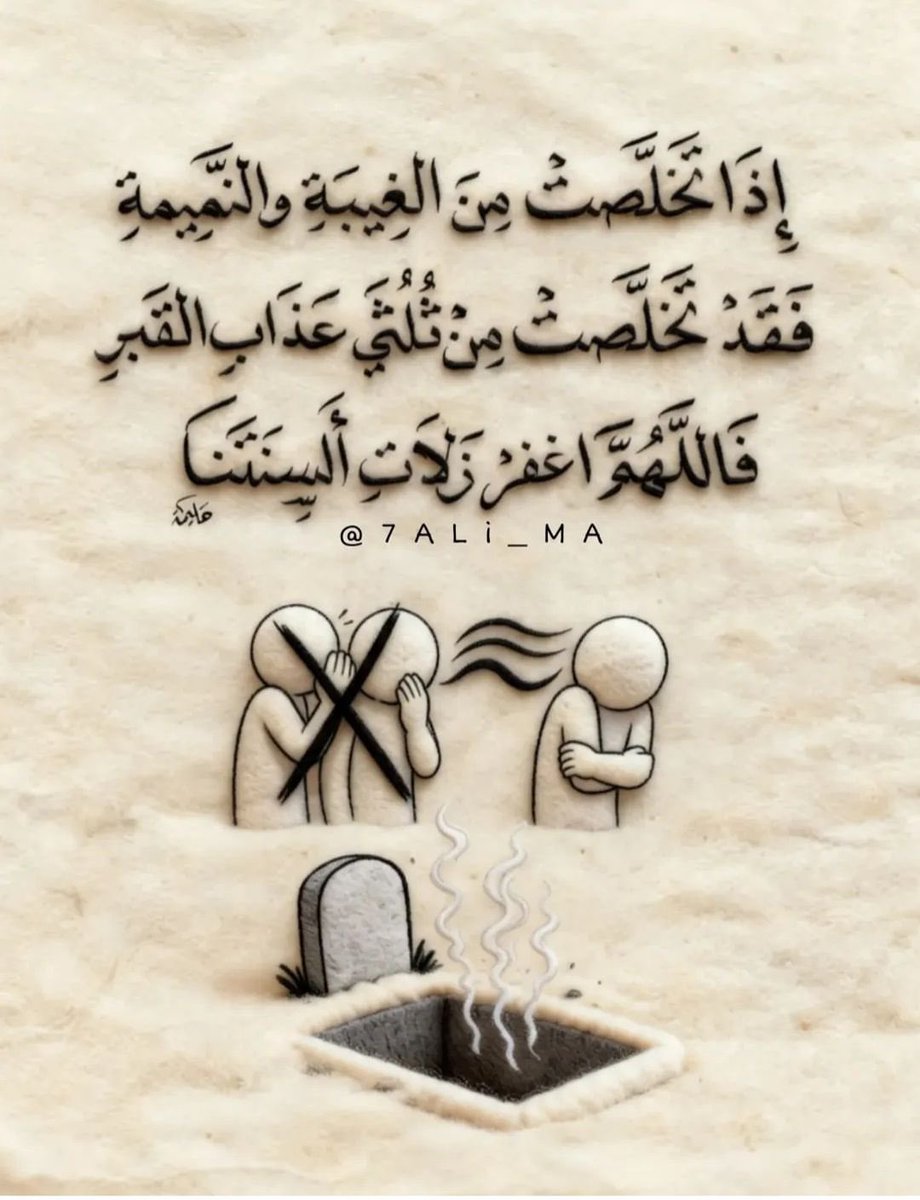 إِذَا تَخَلَّصتْ مِنَ الغِيبَةِ والنَّمِيمةِ
فَقَدْ تَخَلَّصتْ مِنْ ثُلُثَي عَذَابِ القَبرِ
فَاللَّهُمَّ اغفرْ زَلاَتِ أَلسِنَتَنا
حليمة
@7ALi_MA